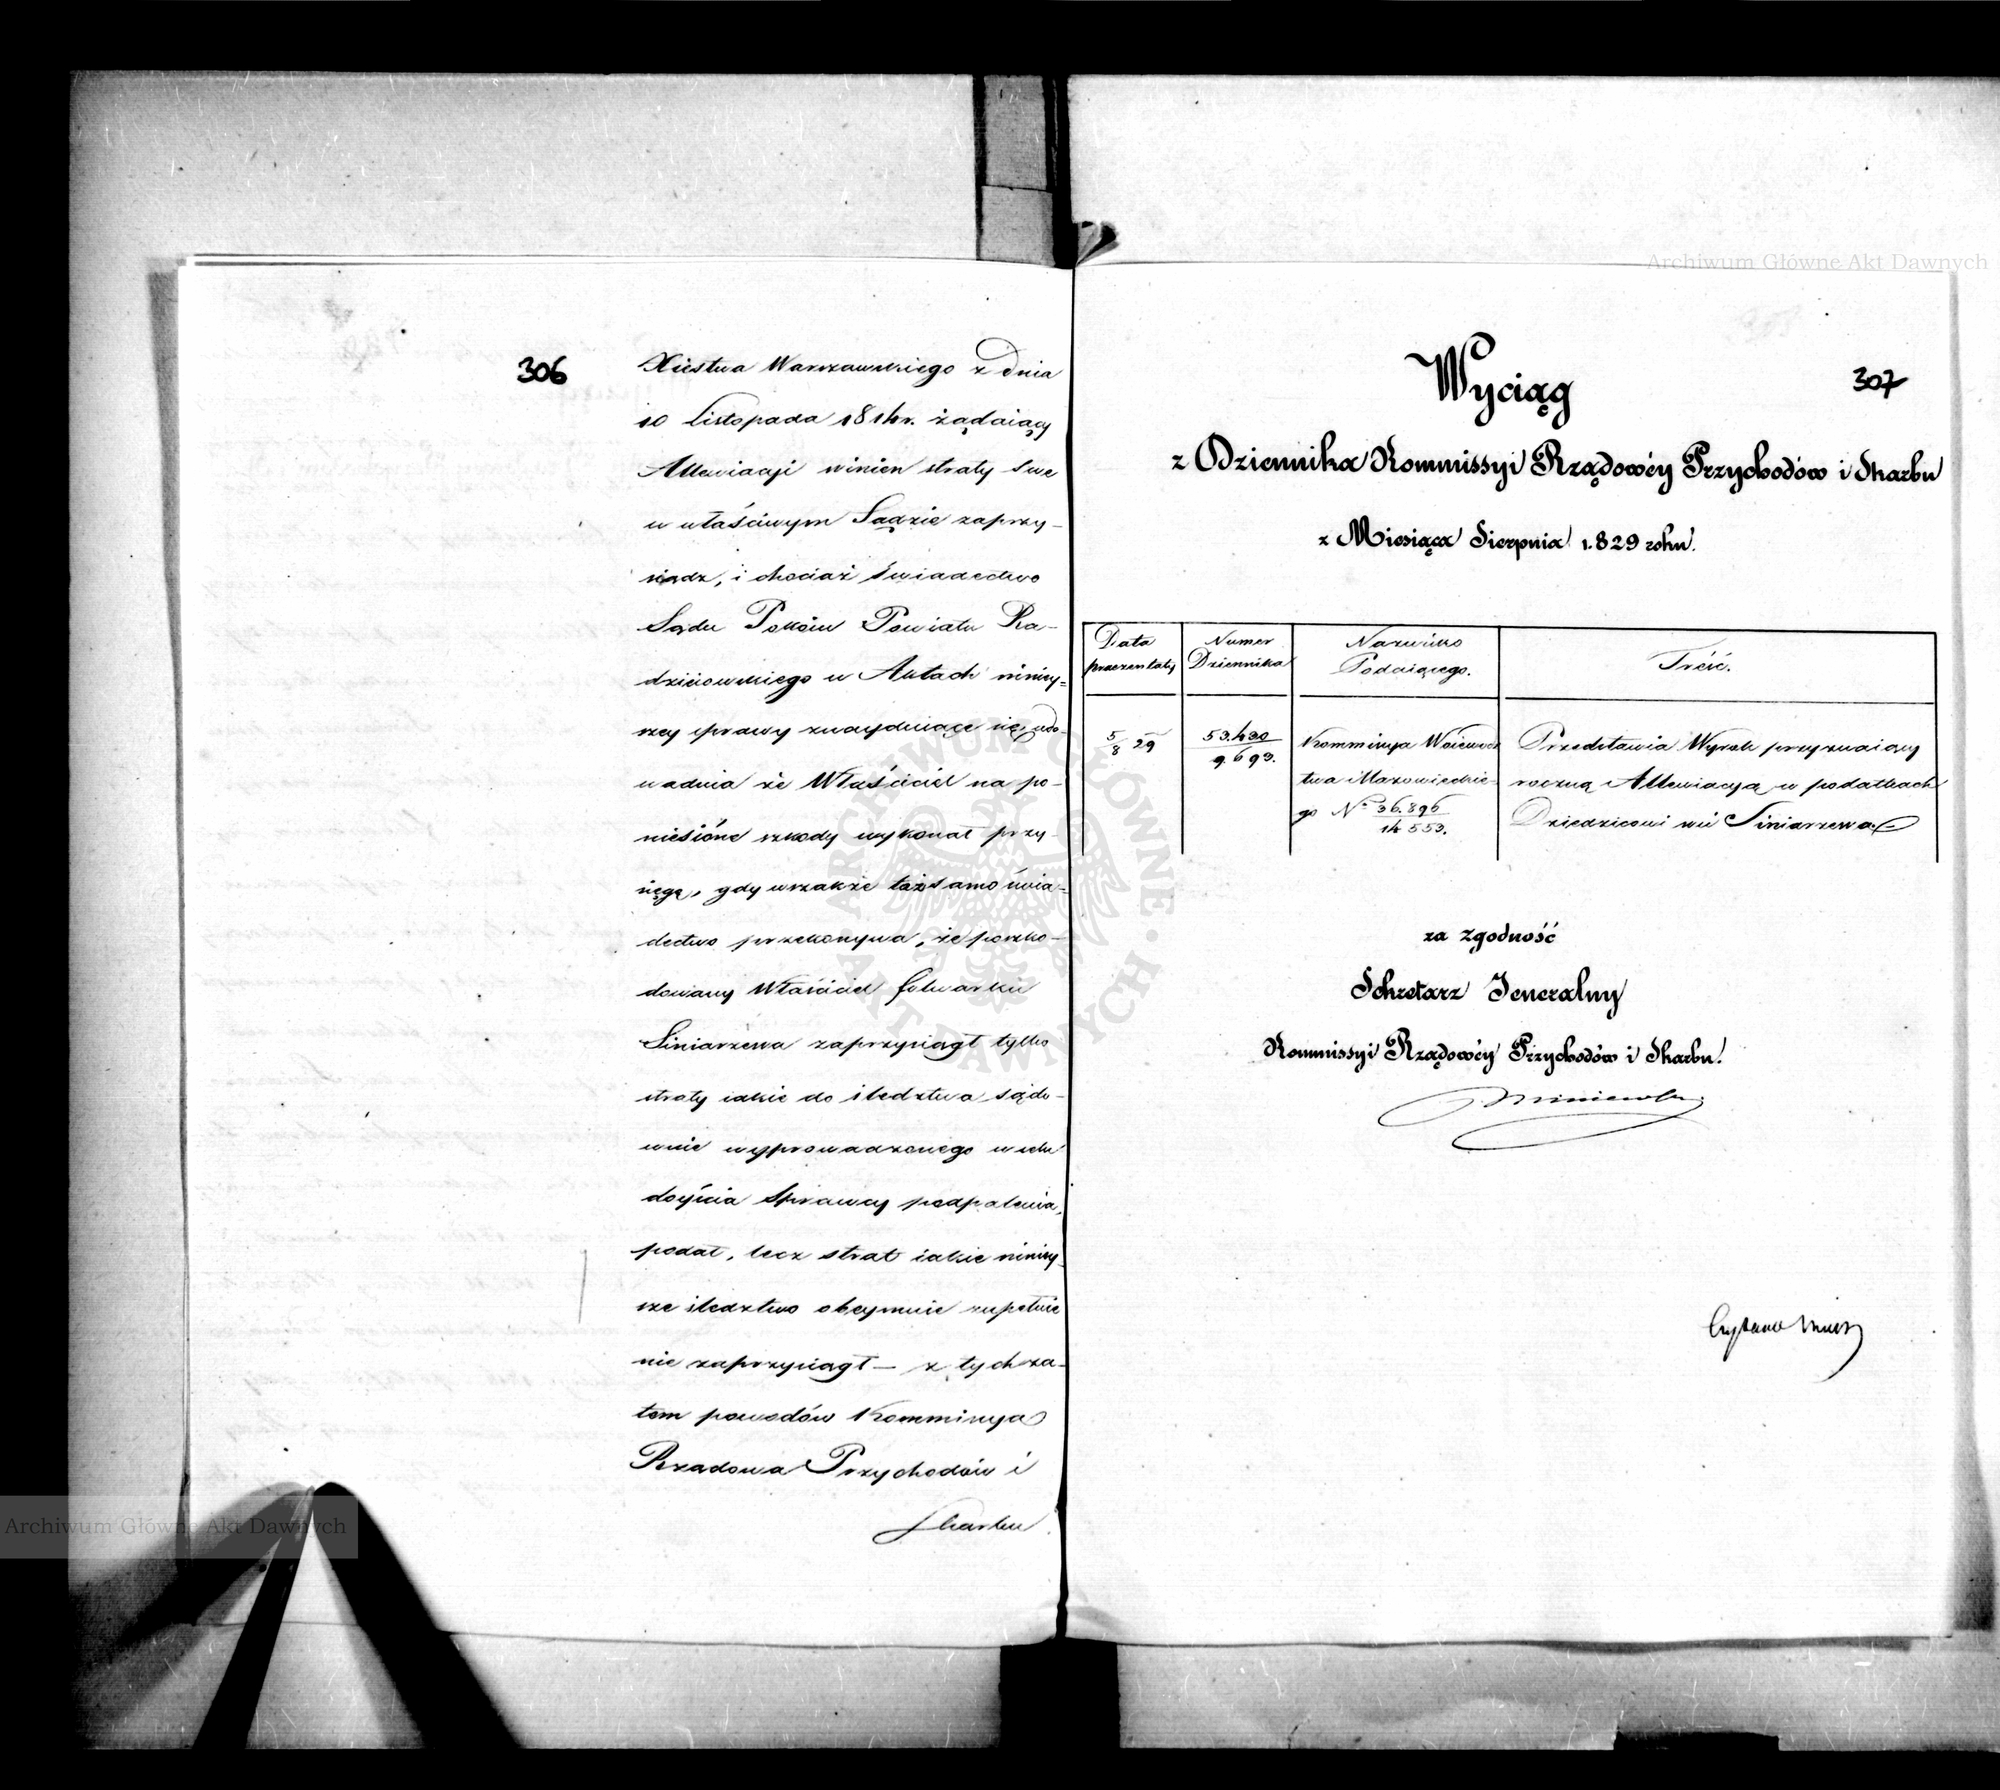 306
Xięstwa Warszawskiego z dnia
10 listopada 1814r. żądaiący
Allewiacyi winien straty swe
w właściwym Sądzie zaprzy-
siądz, i chociaż świadectwo
Sądu Pokoiu Powiatu Ra-
dzieiowskiego w Aktach niniey=
szey sprawy znayduiące się, udo-
wadnia że Właściciel na po-
niesióne szkody wykonał przy-
sięgę, gdy wszakże toż samo świa-
dectwo przekonywa, że poszko-
dowany Właściciel folwarku
Siniarzewa zaprzysiągł tylko
straty iakie do śledztwa sądo-
wnie wyprowadzonego w celu
doyścia Sprawcy podpalenia,
podał, lecz strat iakie niniey-
sze śledztwo obeymuie zupełnie
nie zaprzysiągł — z tych za-
tem powodów Kommissya
Rządowa Przychodów i
Skarbu
307
Wyciąg
z Dziennika Kommissyi Rządowéy Przychodów i Skarbu
z Miesiąca Sierpnia 1.829 roku.
Data prezentaty
Numer Dziennika
Nazwisko Podaiącego.
Treść.
5/8 29
53.430/9.693.
Kommissya Wojewódz
twa Mazowieckie-
go Nº 36.896/14 553.
Przedstawia Wyrok przyznaiący
roczną Allewiacyą w podatkach
Dziedzicowi wsi Siniarzewa.
za zgodność
Sekretarz Jeneralny
Kommissyi Rządowéy Przychodów i Skarbu.
Archiwum Główne Akt Dawnych
Archiwum Główne Akt Dawnych
ARCHIWUM GŁÓWNE AKT DAWNYCH